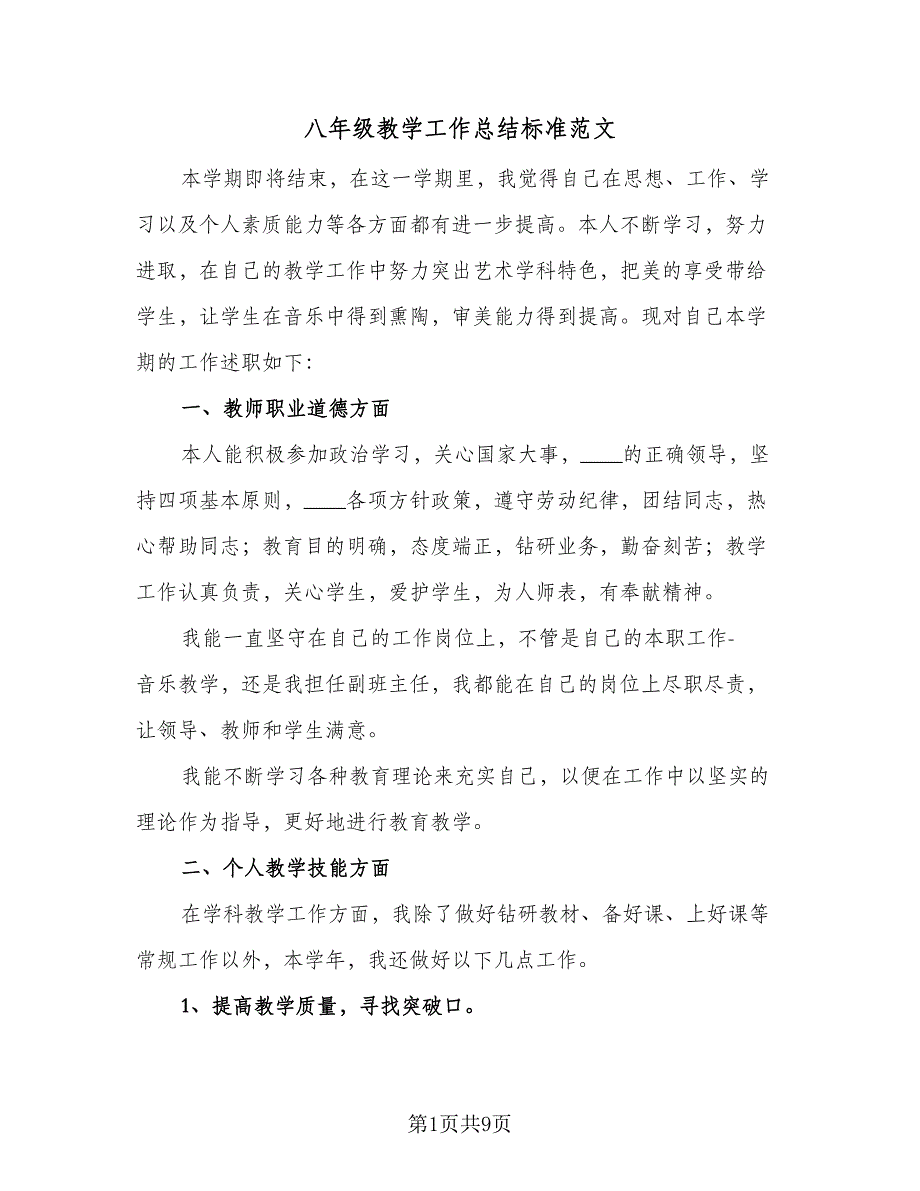 八年级教学工作总结标准范文
本学期即将结束，在这一学期里，我觉得自己在思想、工作、学
习以及个人素质能力等各方面都有进一步提高。本人不断学习，努力
进取，在自己的教学工作中努力突出艺术学科特色，把美的享受带给
学生，让学生在音乐中得到熏陶，审美能力得到提高。现对自己本学
期的工作述职如下：
一、教师职业道德方面
本人能积极参加政治学习，关心国家大事，____的正确领导，坚
持四项基本原则，____各项方针政策，遵守劳动纪律，团结同志，热
心帮助同志；教育目的明确，态度端正，钻研业务，勤奋刻苦；教学
工作认真负责，关心学生，爱护学生，为人师表，有奉献精神。
我能一直坚守在自己的工作岗位上，不管是自己的本职工作-
音乐教学，还是我担任副班主任，我都能在自己的岗位上尽职尽责，
让领导、教师和学生满意。
我能不断学习各种教育理论来充实自己，以便在工作中以坚实的
理论作为指导，更好地进行教育教学。
二、个人教学技能方面
在学科教学工作方面，我除了做好钻研教材、备好课、上好课等
常规工作以外，本学年，我还做好以下几点工作。
1、提高教学质量，寻找突破口。
第1页共9页